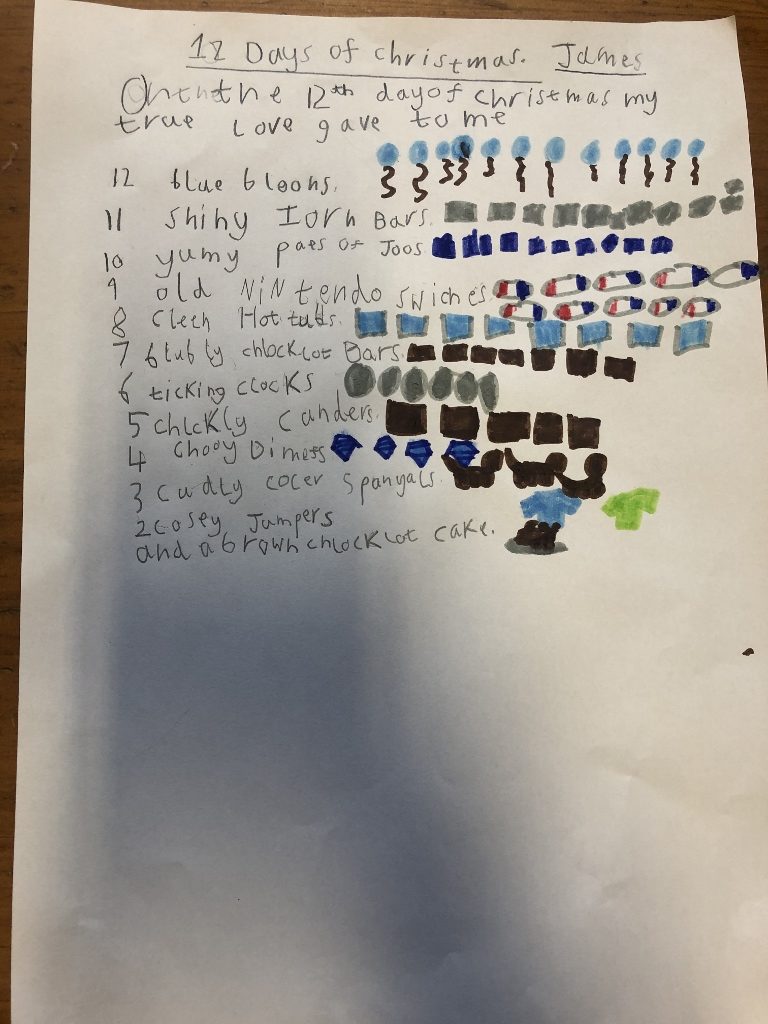 12 Days of christmas. James
On the the 12th day of christmas my
true love gave to me
12 blue bloons.
11 shiny Iorn Bars.
10 yumy paes of Joos
9 old NiNtendo swiches.
8 Cleen Hot tubs.
7 blubly chlocklot Bars.
6 ticking clocks
5 chlckly canders.
4 chooy Dimets
3 cudly cocer spanyals.
2 cosey Jumpers
and a brown chlocklot cake.